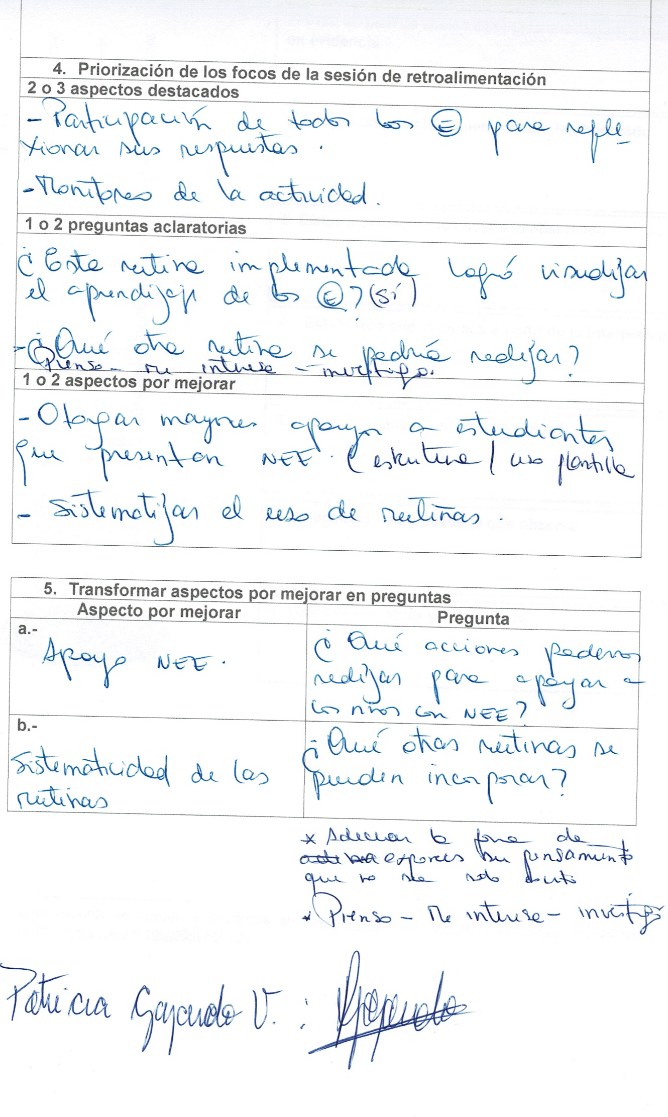 4. Priorización de los focos de la sesión de retroalimentación
2 o 3 aspectos destacados
- Participación de todos los Ⓔ para refle-
xionar sus respuestas.
- Monitoreo de la actividad.
1 o 2 preguntas aclaratorias
¿Esta rutina implementada logró visualizar
el aprendizaje de los Ⓔ? (sí)
- ¿Qué otra rutina se podría realizar?
Pienso - me interesa - investigo.
1 o 2 aspectos por mejorar
- Otorgar mayores apoyos a estudiantes
que presentan NEE. (escritura / uso plantilla
- Sistematizar el uso de rutinas.
5. Transformar aspectos por mejorar en preguntas
Aspecto por mejorar
Pregunta
a.-
Apoyo NEE.
¿Qué acciones podemos
realizar para apoyar a
los niños con NEE?
b.-
Sistematicidad de las
rutinas
¿Qué otras rutinas se
pueden incorporar?
* Adecuar la forma de
exponer su pensamiento
que no sea solo
* Pienso - Me interesa - investigo
Patricia Gajardo V. :